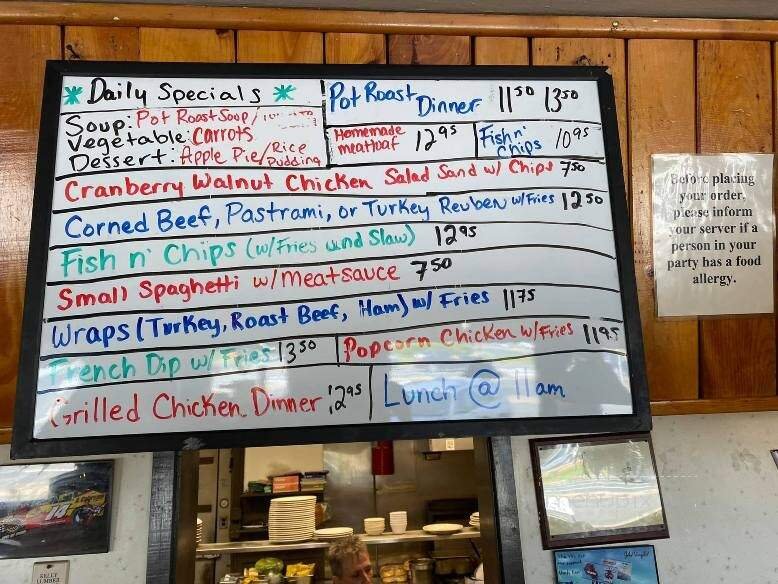 * Daily Specials *
Soup: Pot Roast Soup/
Vegetable: Carrots
Dessert: Apple Pie/Rice Pudding
Pot Roast Dinner 11 50 13 50
Homemade meatloaf 12 95
Fish n' Chips 10 95
Cranberry Walnut Chicken Salad Sand w/ Chips 7 50
Corned Beef, Pastrami, or Turkey Reuben w/Fries 12 50
Fish n' Chips (w/Fries and Slaw) 12 95
Small Spaghetti w/meatsauce 7 50
Wraps (Turkey, Roast Beef, Ham) w/ Fries 11 75
French Dip w/ Fries 13 50
Popcorn Chicken w/Fries 11 95
Grilled Chicken Dinner 12 95
Lunch @ 11am
Before placing
your order,
please inform
your server if a
person in your
party has a food
allergy.
14